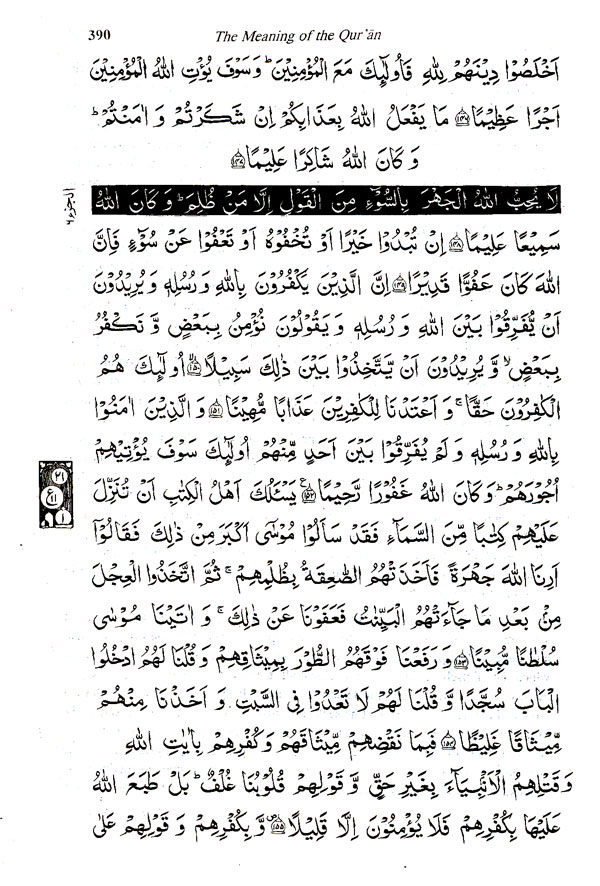 390
The Meaning of the Qur'ān
اَخۡلَصُوۡا دِيۡنَهُمۡ لِلّٰهِ فَاُولٰٓٮِٕكَ مَعَ الۡمُؤۡمِنِيۡنَ‌ؕ وَسَوۡفَ يُؤۡتِ اللّٰهُ الۡمُؤۡمِنِيۡنَ
اَجۡرًا عَظِيۡمًا ﴿۱۴۶﴾ مَا يَفۡعَلُ اللّٰهُ بِعَذَابِكُمۡ اِنۡ شَكَرۡتُمۡ وَ اٰمَنۡتُمۡ‌ؕ
وَ كَانَ اللّٰهُ شَاكِرًا عَلِيۡمًا ﴿۱۴۷﴾
الجزء ۶
لَا يُحِبُّ اللّٰهُ الۡجَهۡرَ بِالسُّوۡٓءِ مِنَ الۡقَوۡلِ اِلَّا مَنۡ ظُلِمَ‌ؕ وَ كَانَ اللّٰهُ
سَمِيۡعًا عَلِيۡمًا ﴿۱۴۸﴾ اِنۡ تُبۡدُوۡا خَيۡرًا اَوۡ تُخۡفُوۡهُ اَوۡ تَعۡفُوۡا عَنۡ سُوۡٓءٍ فَاِنَّ
اللّٰهَ كَانَ عَفُوًّا قَدِيۡرًا ﴿۱۴۹﴾ اِنَّ الَّذِيۡنَ يَكۡفُرُوۡنَ بِاللّٰهِ وَ رُسُلِهٖ وَ يُرِيۡدُوۡنَ
اَنۡ يُّفَرِّقُوۡا بَيۡنَ اللّٰهِ وَ رُسُلِهٖ وَ يَقُوۡلُوۡنَ نُؤۡمِنُ بِبَعۡضٍ وَّ نَكۡفُرُ
بِبَعۡضٍۙ وَّ يُرِيۡدُوۡنَ اَنۡ يَّتَّخِذُوۡا بَيۡنَ ذٰلِكَ سَبِيۡلًا ﴿۱۵۰﴾ اُولٰٓٮِٕكَ هُمُ
الۡكٰفِرُوۡنَ حَقًّا‌ۚ وَ اَعۡتَدۡنَا لِلۡكٰفِرِيۡنَ عَذَابًا مُّهِيۡنًا ﴿۱۵۱﴾ وَ الَّذِيۡنَ اٰمَنُوۡا
بِاللّٰهِ وَ رُسُلِهٖ وَ لَمۡ يُفَرِّقُوۡا بَيۡنَ اَحَدٍ مِّنۡهُمۡ اُولٰٓٮِٕكَ سَوۡفَ يُؤۡتِيۡهِمۡ
اُجُوۡرَهُمۡ‌ؕ وَ كَانَ اللّٰهُ غَفُوۡرًا رَّحِيۡمًا ﴿۱۵۲﴾ يَسۡـَٔلُكَ اَهۡلُ الۡكِتٰبِ اَنۡ تُنَزِّلَ
۲۱
ع
۱
عَلَيۡهِمۡ كِتٰبًا مِّنَ السَّمَآءِ‌ فَقَدۡ سَاَلُوۡا مُوۡسٰٓى اَكۡبَرَ مِنۡ ذٰلِكَ فَقَالُوۡۤا
اَرِنَا اللّٰهَ جَهۡرَةً فَاَخَذَتۡهُمُ الصّٰعِقَةُ بِظُلۡمِهِمۡ‌ۚ ثُمَّ اتَّخَذُوا الۡعِجۡلَ
مِنۡۢ بَعۡدِ مَا جَآءَتۡهُمُ الۡبَيِّنٰتُ فَعَفَوۡنَا عَنۡ ذٰلِكَ‌ۚ وَ اٰتَيۡنَا مُوۡسٰى
سُلۡطٰنًا مُّبِيۡنًا ﴿۱۵۳﴾ وَ رَفَعۡنَا فَوۡقَهُمُ الطُّوۡرَ بِمِيۡثَاقِهِمۡ وَ قُلۡنَا لَهُمُ ادۡخُلُوا
الۡبَابَ سُجَّدًا وَّ قُلۡنَا لَهُمۡ لَا تَعۡدُوۡا فِى السَّبۡتِ وَ اَخَذۡنَا مِنۡهُمۡ
مِّيۡثَاقًا غَلِيۡظًا ﴿۱۵۴﴾ فَبِمَا نَقۡضِهِمۡ مِّيۡثَاقَهُمۡ وَ كُفۡرِهِمۡ بِاٰيٰتِ اللّٰهِ
وَ قَتۡلِهِمُ الۡاَنۡۢبِيَآءَ بِغَيۡرِ حَقٍّ وَّ قَوۡلِهِمۡ قُلُوۡبُنَا غُلۡفٌ‌ؕ بَلۡ طَبَعَ اللّٰهُ
عَلَيۡهَا بِكُفۡرِهِمۡ فَلَا يُؤۡمِنُوۡنَ اِلَّا قَلِيۡلًا ﴿۱۵۵﴾ وَّ بِكُفۡرِهِمۡ وَ قَوۡلِهِمۡ عَلٰى